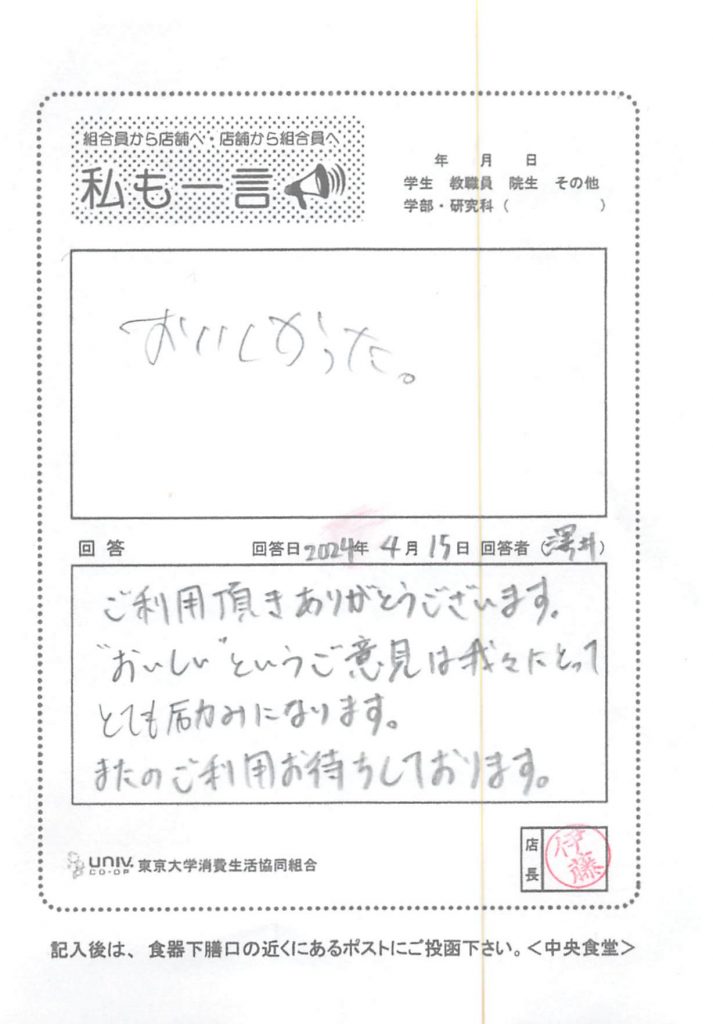 組合員から店舗へ・店舗から組合員へ
私も一言
年 月 日
学生 教職員 院生 その他
学部・研究科( )
おいしかった。
回答 回答日2024年 4月15日 回答者(澤井)
ご利用頂きありがとうございます。
"おいしい"というご意見は我々にとって
とても励みになります。
またのご利用お待ちしております。
UNIV. CO-OP 東京大学消費生活協同組合
店長 伊藤
記入後は、食器下膳口の近くにあるポストにご投函下さい。<中央食堂>